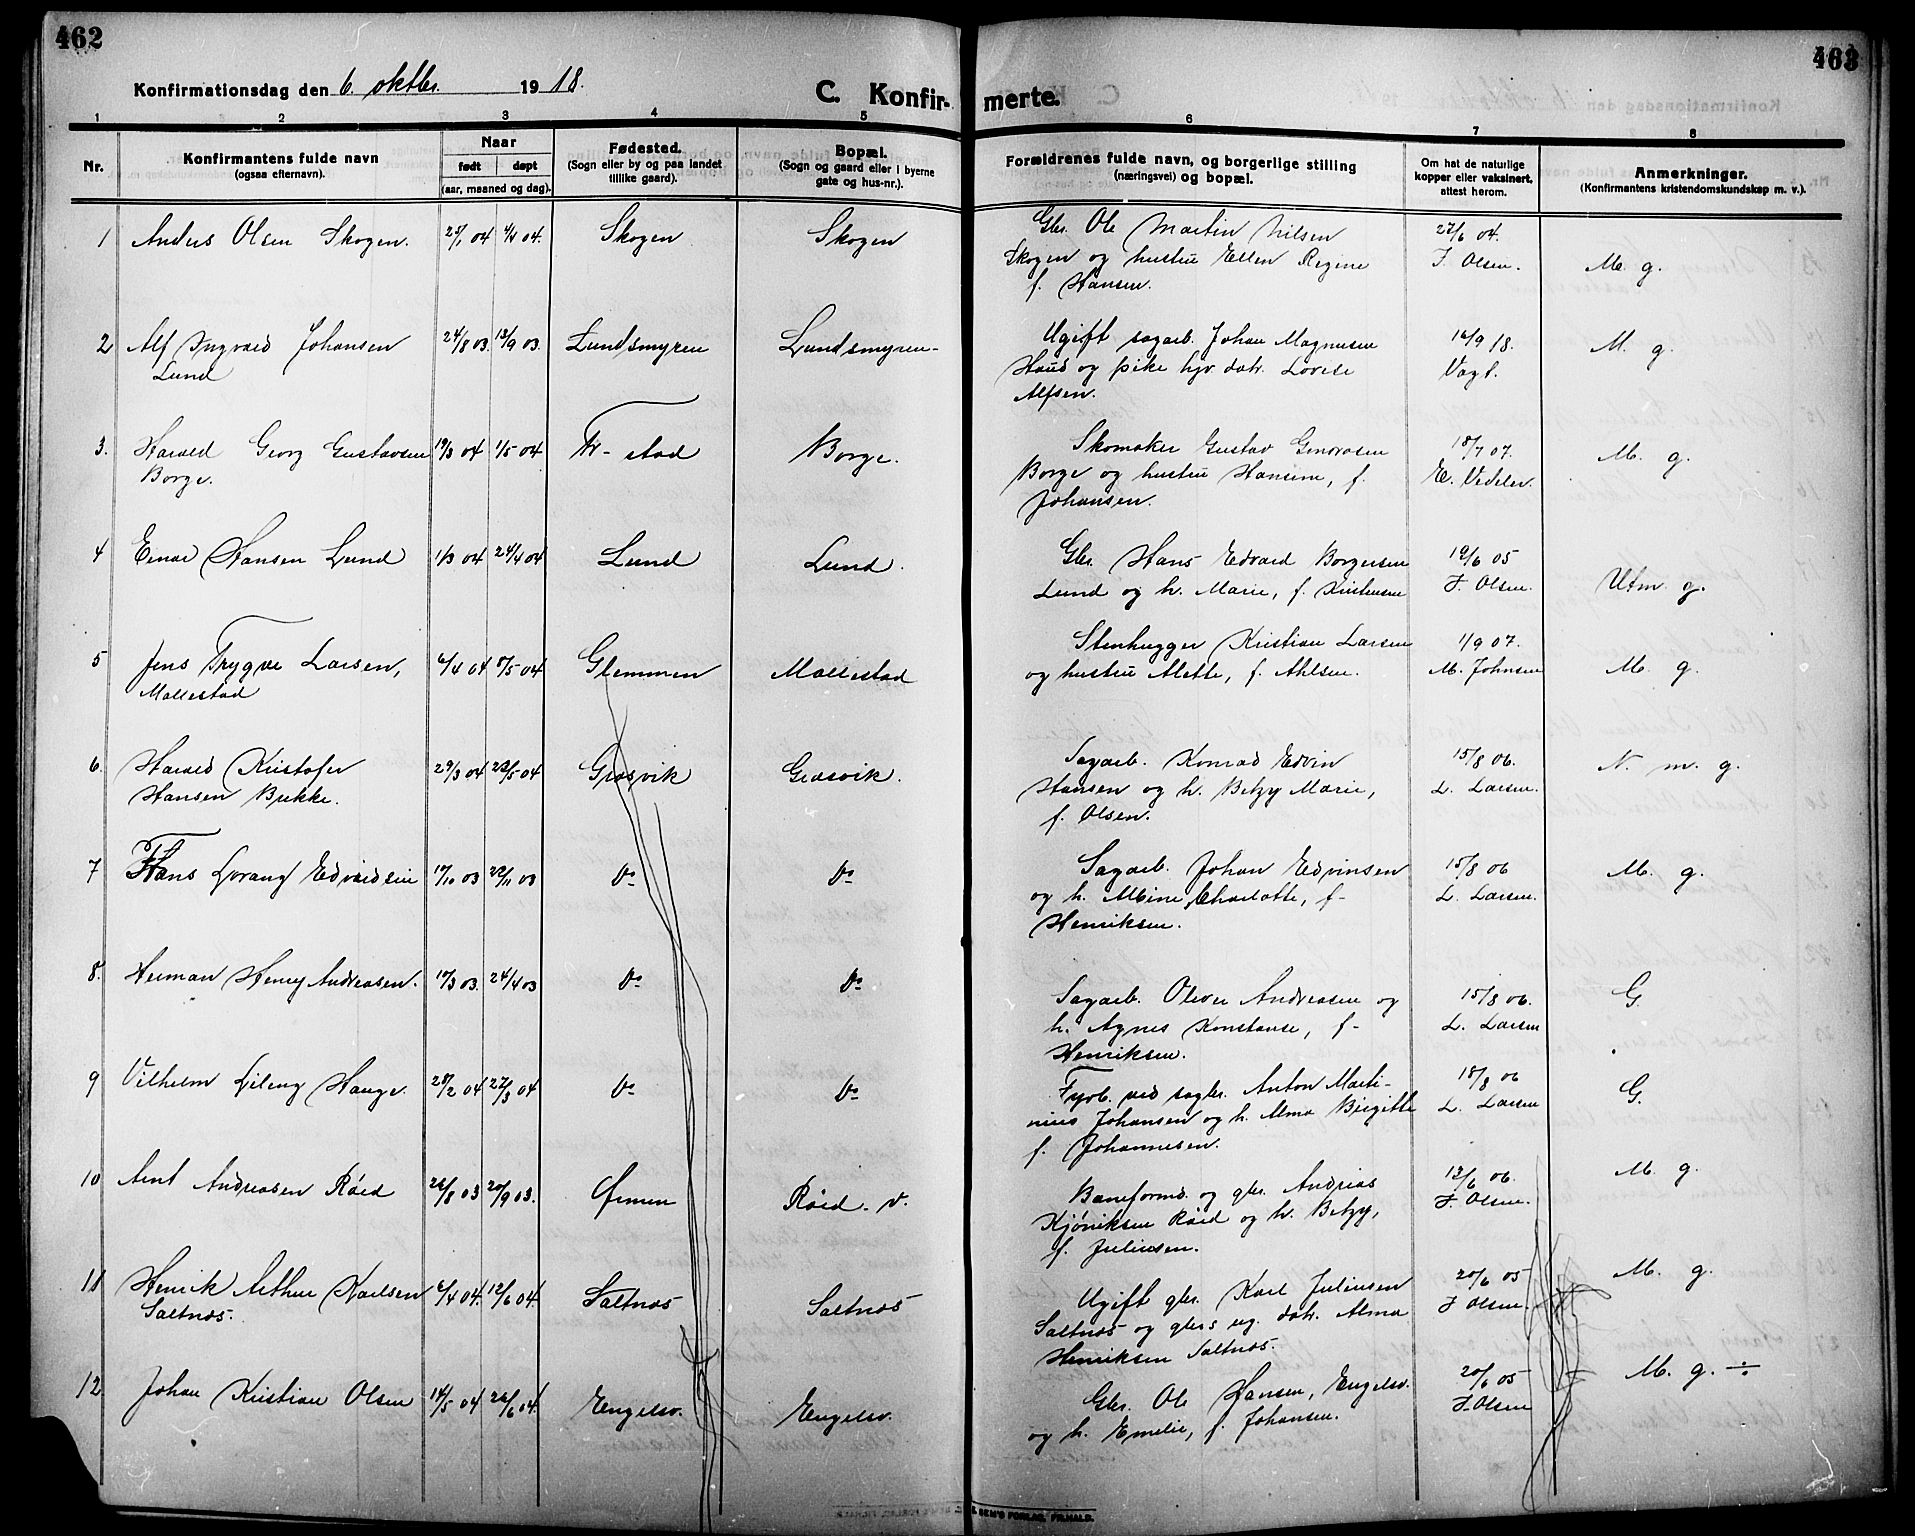 462
463
Konfirmationsdag den 6. oktbr. 1918.
C. Konfirmerte.
1 2 3 4 5 6 7 8
Nr.
Konfirmantens fulde navn
(ogsaa efternavn).
Naar
født døpt
(aar, maaned og dag).
Fødested.
(Sogn eller by og paa landet
tillike gaard).
Bopæl.
(Sogn og gaard eller i byerne
gate og hus-nr.).
Forældrenes fulde navn, og borgerlige stilling
(næringsvei) og bopæl.
Om hat de naturlige
kopper eller vaksinert,
attest herom.
Anmerkninger.
(Konfirmantens kristendomskundskap m. v.).
1 Anders Olsen Skogen. 25/1 04 4/4 04. Skogen Skogen Gbr. Ole Martin Nilsen 27/6 04.
Skogen og hustru Ellen Regine J. Olsen. M. g.
f. Hansen.
2 Alf Ingvard Johansen 24/8 03. 13/9 03. Lundsmyren Lundsmyren Ugift sagarb. Johan Magnusen 16/9 18. M. g.
Lund Haug og pike hjv. datr. Lovise Vogt.
Alfsen.
3. Harald Georg Gustavsen 19/3 04 1/5 04 Fr-stad Borge. Skomaker Gustav 18/7 07. M. g.
Borge. Borge og hustru Hansine, f. E. Vedeler.
Johansen.
4 Einar Hansen Lund 1/3 04 24/4 04 Lund Lund. Gbr. Hans Edvard Borgersen 19/6 05
Lund og h. Marie, f. Kristensen J. Olsen. Utm. g.
5 Jens Trygve Larsen, 6/4 04 5/5 04 Glemmen Mollestad Stenhugger Kristian Larsen 1/9 07.
Mollestad og hustru Alette, f. Ahlsen. M. Johnsen M. g.
6. Harald Kristofer 29/3 04 23/5 04 Græsvik Græsvik. Sagarb. Konrad Edvin 15/8 06. N. m. g.
Hansen Brekke. Hansen og h. Betzy Marie, L. Larsen.
f. Olsen.
7 Hans Lorang Edvardsen 17/10 03 22/11 03 Do Do Sagarb. Johan Edvinsen 15/8 06 M. g.
og h. Albine Charlotte, f- L. Larsen.
Henriksen.
8. Herman Henry Andreasen. 17/3 03. 24/4 03 Do Do Sagarb. Oliver Andreasen og 15/8 06. G
h. Agnes Konstanse, f- L. Larsen
Henriksen.
9 Vilhelm Hauge 28/2 04 27/3 04 Do Do Fyrb. ved sagbr. Anton Marti- 18/8 06 G.
nius Johansen og h. Alma Birgitte L. Larsen
f. Johannesen.
10 Arnt Andreasen Röed 26/8 03 20/9 03. Ørmen Röed. v. Baneformd. og gbr. Andreas 13/6 06. M. g.
Kjöniksen Röed og h. Betzy, J. Olsen.
f. Juliusen.
11 Henrik Arthur Karlsen 6/4 04. 12/6 04. Saltnes Saltnes Ugift gbr. Karl Juliusen 20/6 05 M. g.
Saltnes. Saltnes og gbrs ug. datr. Alma J Olsen.
Henriksen Saltnes.
12 Johan Kristian Olsen 14/5 04 26/6 04. Engelsv. Engelsv. Gbr. Ole Hansen, Engelsv. 20/6 05 M. g. ÷
og h. Emelie, f. Johansen. J. Olsen